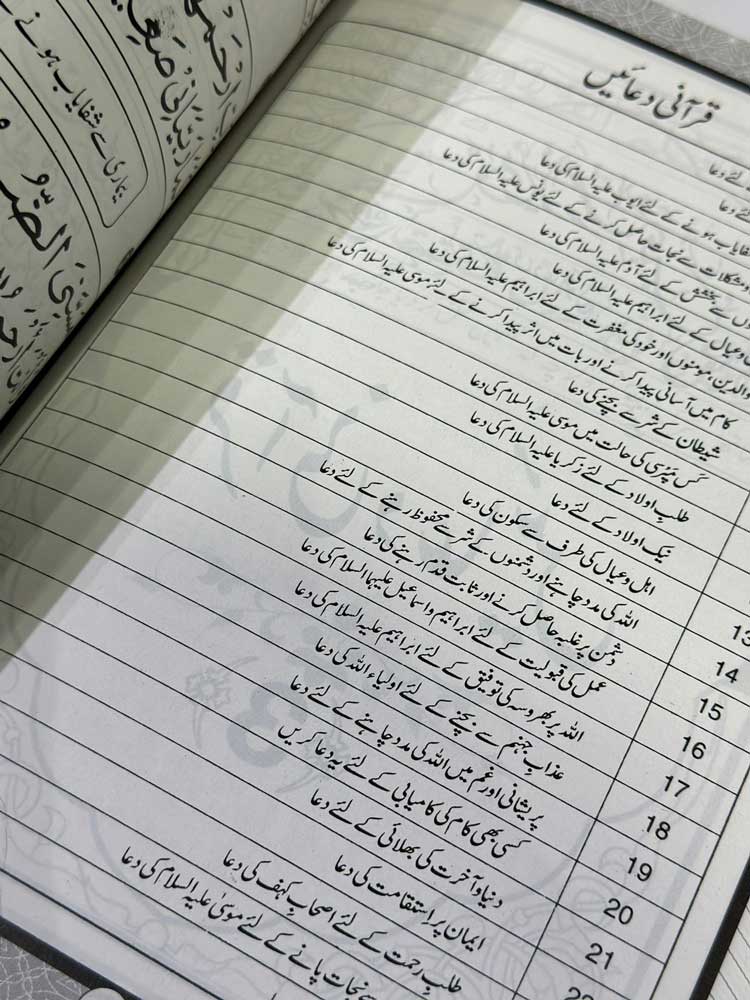 قرآنی دعائیں
کے لئے دعا
کے لئے دعا
شفایاب ہونے کے لئے ایوب علیہ السلام کی دعا
مشکلات سے نجات حاصل کرنے کے لئے یونس علیہ السلام کی دعا
سے بخشش کے لئے آدم علیہ السلام کی دعا
وعیال کے لئے ابراہیم علیہ السلام کی دعا
والدین، مومنوں اور خود کی مغفرت کے لئے ابراہیم علیہ السلام کی دعا
کام میں آسانی پیدا کرنے اور بات میں اثر پیدا کرنے کے لئے موسیٰ علیہ السلام کی دعا
شیطان کے شر سے بچنے کی دعا
کس مپرسی کی حالت میں موسیٰ علیہ السلام کی دعا
طلبِ اولاد کے لئے زکریا علیہ السلام کی دعا
نیک اولاد کے لئے دعا
13 اہل و عیال کی طرف سے سکون کی دعا
14 اللہ کی مدد چاہنے اور دشمنوں کے شر سے محفوظ رہنے کے لئے دعا
15 دشمن پر غلبہ حاصل کرنے اور ثابت قدم رہنے کی دعا
16 عمل کی قبولیت کے لئے ابراہیم و اسماعیل علیہما السلام کی دعا
17 اللہ پر بھروسہ کی توفیق کے لئے ابراہیم علیہ السلام کی دعا
18 عذابِ جہنم سے بچنے کے لئے اولیاء اللہ کی دعا
19 پریشانی اور غم میں اللہ کی مدد چاہنے کے لئے دعا
20 کسی بھی کام کی کامیابی کے لئے یہ دعا کریں
21 دنیا و آخرت کی بھلائی کے لئے دعا
22 ایمان پر استقامت کی دعا
طلبِ رحمت کے لئے اصحابِ کہف کی دعا
سے نجات پانے کے لئے موسیٰ علیہ السلام کی دعا
بیماری سے شفایاب ہونے